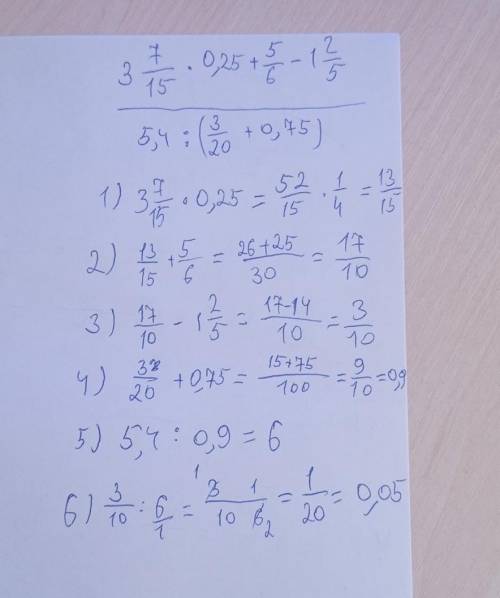 3 7/15 · 0,25 + 5/6 - 1 2/5
5,4 : (3/20 + 0,75)
1) 3 7/15 · 0,25 = 52/15 · 1/4 = 13/15
2) 13/15 + 5/6 = 26+25/30 = 17/10
3) 17/10 - 1 2/5 = 17-14/10 = 3/10
4) 3/20 + 0,75 = 15+75/100 = 9/10 = 0,9
5) 5,4 : 0,9 = 6
6) 3/10 : 6/1 = 1 3 1/10 6 2 = 1/20 = 0,05